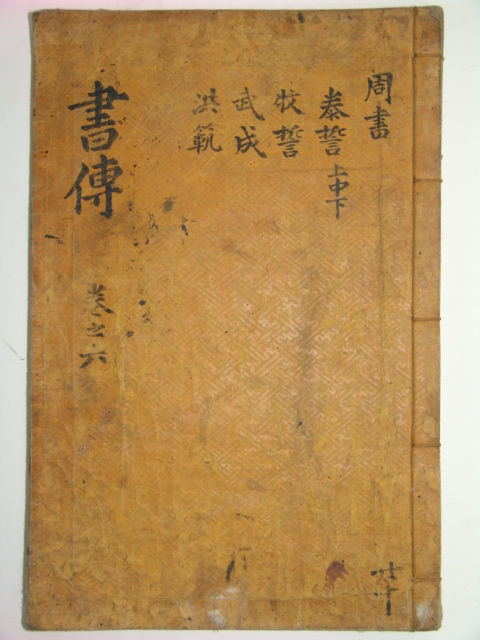 周書
泰誓 上中下
牧誓
武成
洪範
書傳
卷之六